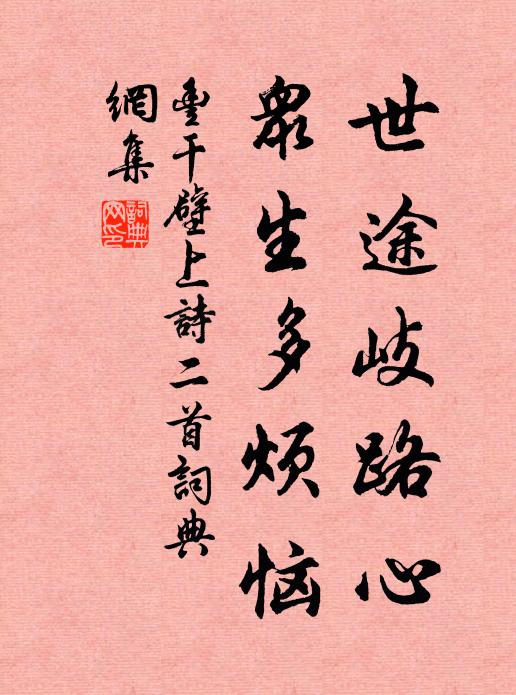 世途岐路心
眾生多煩恼
豐干壁上詩二首詞典
網集
詞典
网印